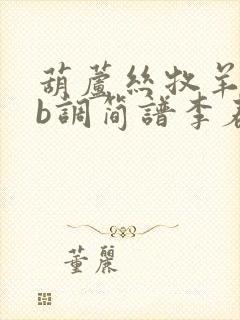 葫蘆絲牧羊
b調简譜李春
董麗